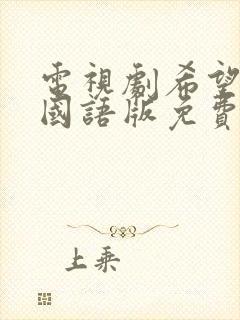 電視劇希望
國語版免費
上乘